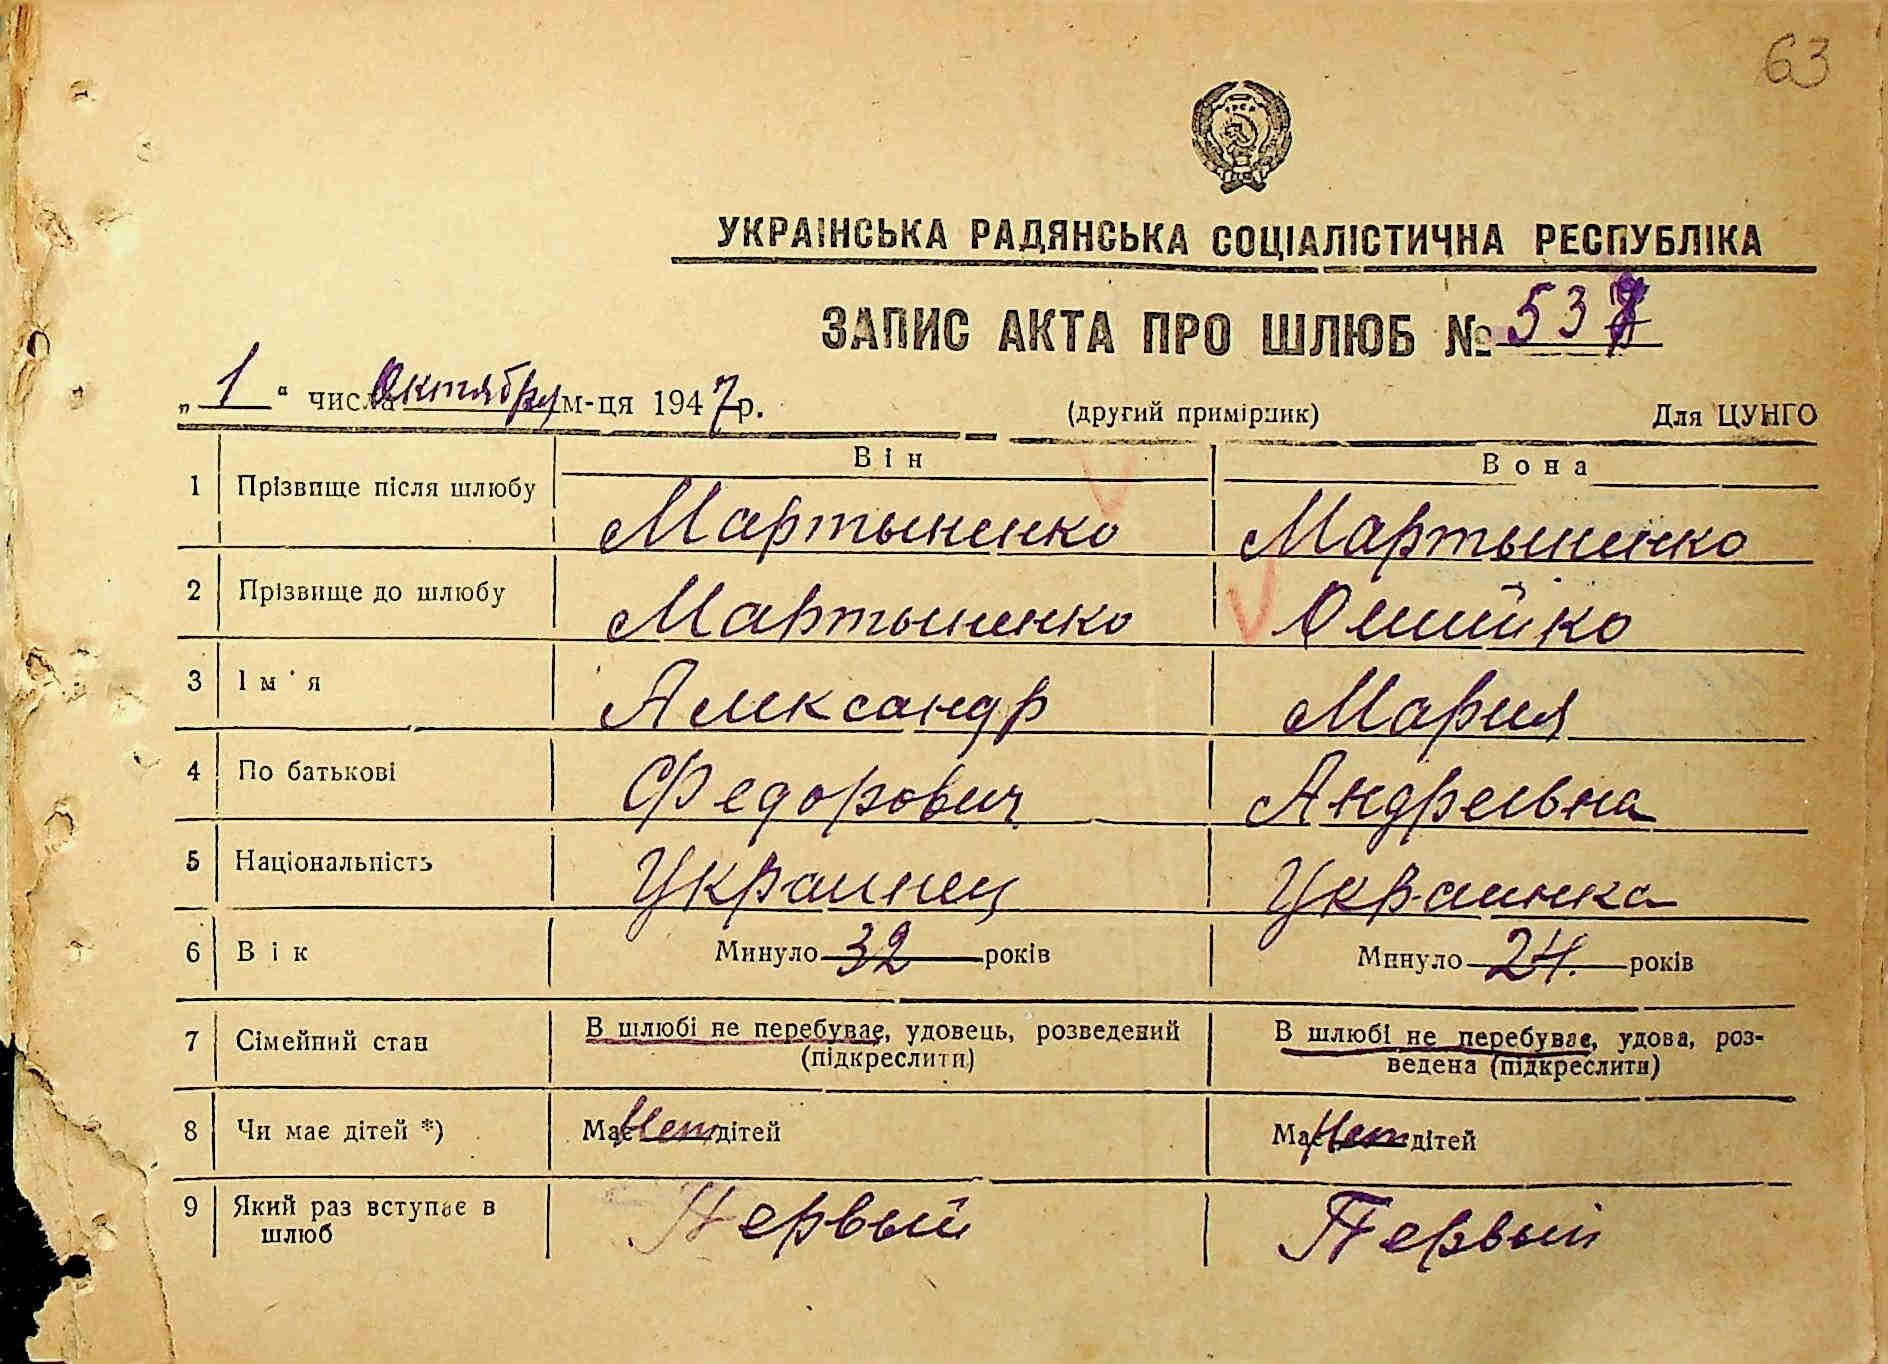 63
УКРАЇНСЬКА РАДЯНСЬКА СОЦІАЛІСТИЧНА РЕСПУБЛІКА
ЗАПИС АКТА ПРО ШЛЮБ № 53
„ 1 “ числа Октября м-ця 1947 р. (другий примірник) Для ЦУНГО
Він Вона
1 Прізвище після шлюбу Мартыненко Мартыненко
2 Прізвище до шлюбу Мартыненко
3 Ім'я Александр Мария
4 По батькові Федорович Андреевна
5 Національність Украинец Украинка
6 Вік Минуло 32 років Минуло 24. років
7 Сімейний стан В шлюбі не перебуває, удовець, розведений (підкреслити) В шлюбі не перебуває, удова, роз-
ведена (підкреслити)
8 Чи має дітей *) Має Нет дітей Має Нет дітей
9 Який раз вступає в шлюб Первый Первый